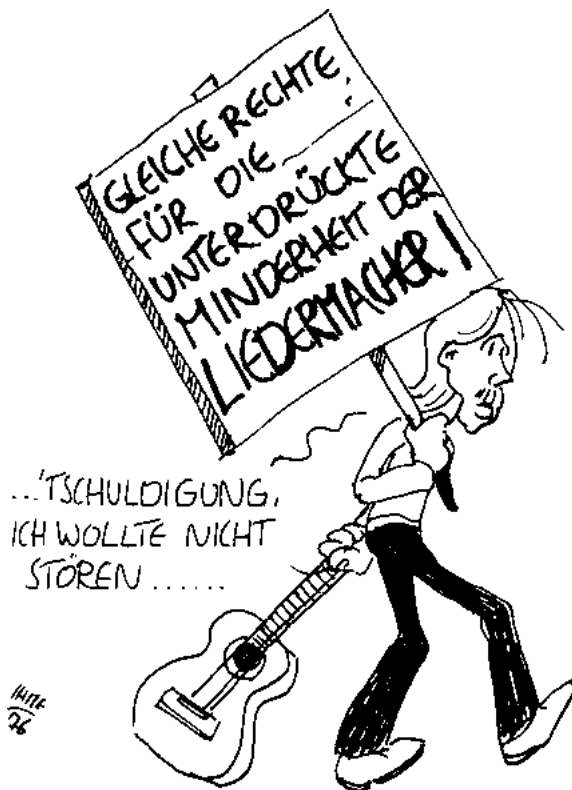 GLEICHE RECHTE
FÜR DIE
UNTERDRÜCKTE
MINDERHEIT DER
LIEDERMACHER!
...'TSCHULDIGUNG,
ICH WOLLTE NICHT
STÖREN......
76